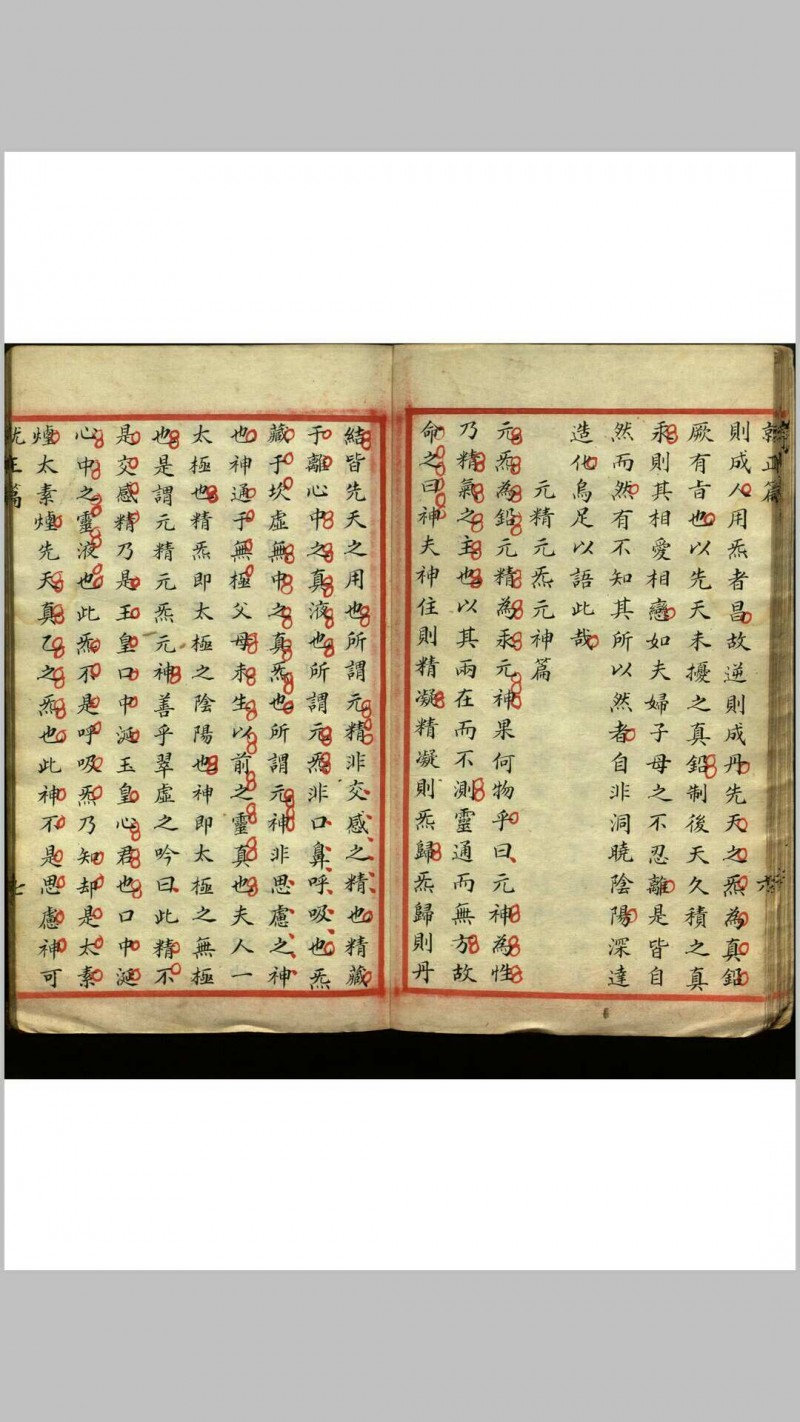 則成人用炁者昌故逆則成丹先天之炁為真鉛
厥有旨也以先天未擾之真鉛制後天久積之真
汞則其相愛相戀如夫婦子母之不忍離是皆自
然而然有不知其所以然者自非洞曉陰陽深達
造化烏足以語此哉
元精元炁元神篇
元炁為鉛元精為汞元神果何物乎曰元神為性
乃精氣之主也以其兩在而不測靈通而無方故
命之曰神夫神住則精凝精凝則炁歸炁歸則丹
結皆先天之用也所謂元精非交感之精也精藏
于離心中之真液也所謂元炁非口鼻呼吸也炁
藏于坎虛無中之真炁也所謂元神非思慮之神
也神通于無極父母未生以前之靈真也夫人一
太極也精炁即太極之陰陽也神即太極之無極
也是謂元精元炁元神善乎翠虛之吟曰此精不
是交感精乃是玉皇口中涎玉皇心君也口中涎
心中之靈液也此炁不是呼吸炁乃知却是太素
煙太素煙先天真乙之炁也此神不是思慮神可